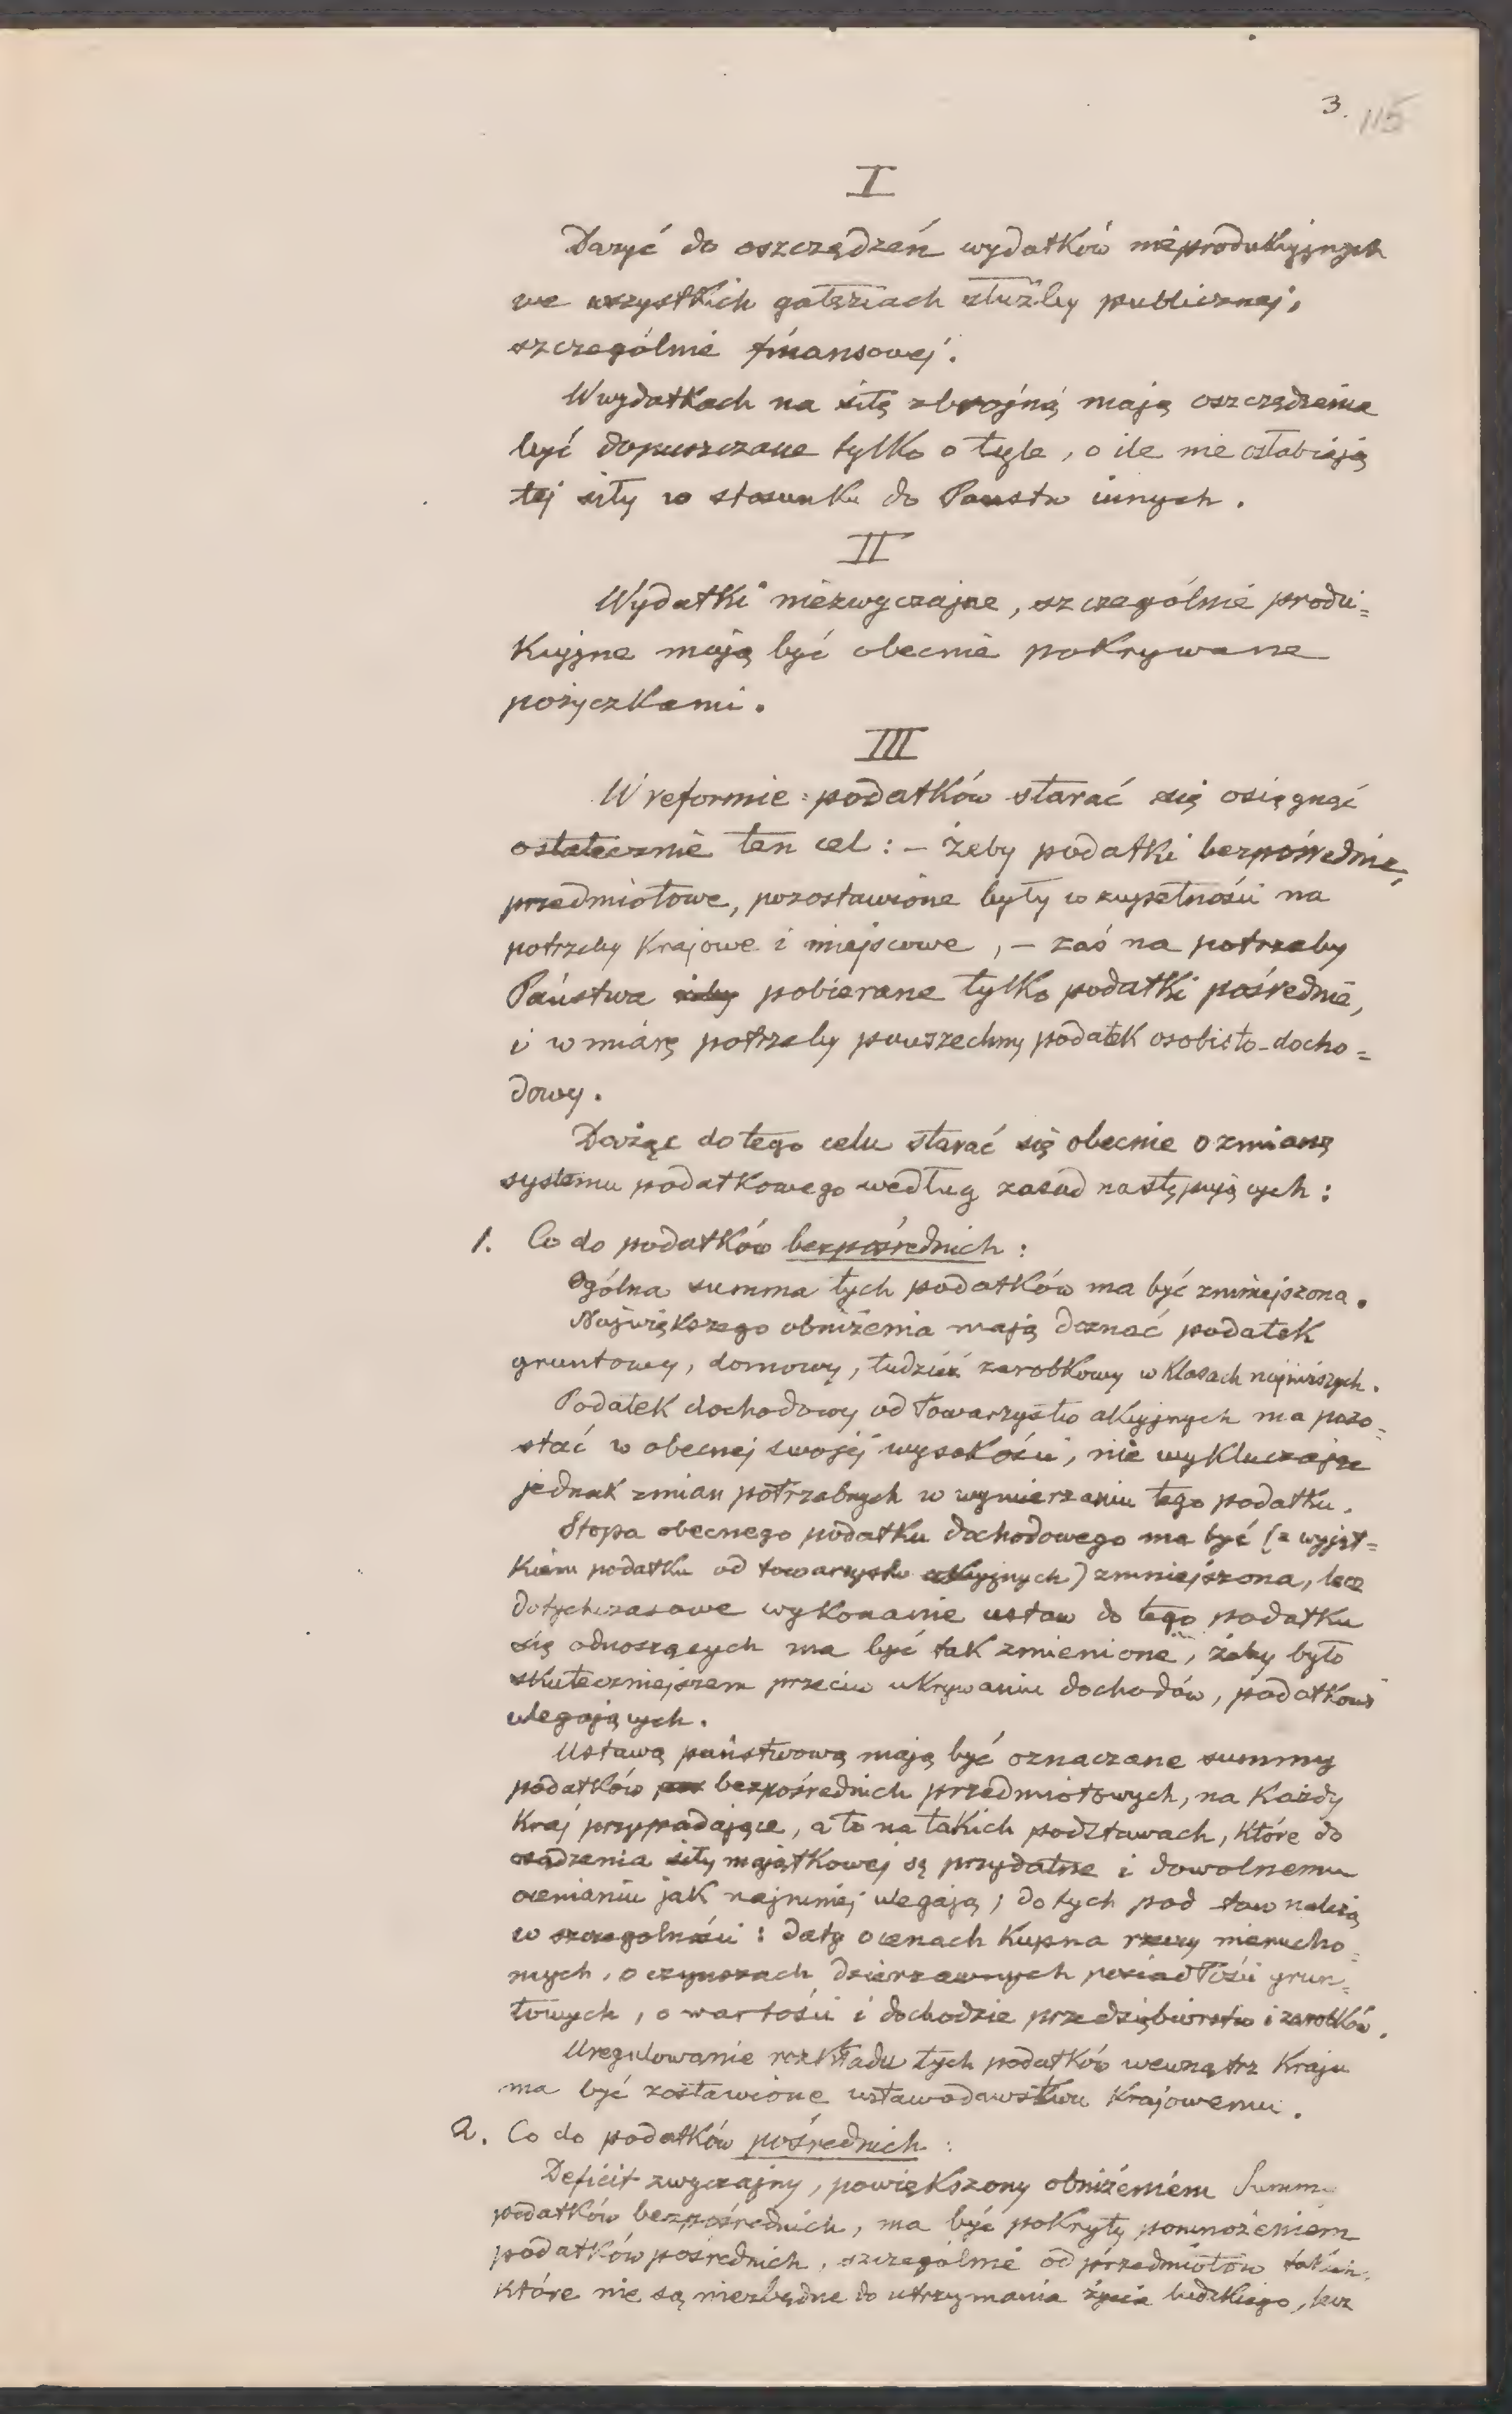 3. 115
I
Dążyć do oszczędzeń wydatków nieprodukcyjnych
we wszystkich gałęziach służby publicznej,
szczególnie finansowej.
W wydatkach na siłę zbrojną mają oszczędzenia
być dopuszczane tylko o tyle, o ile nie osłabiają
tej siły w stosunku do Państw innych.
II
Wydatki niezwyczajne, szczególnie produ=
kcyjne mają być obecnie pokrywane
pożyczkami.
III
W reformie podatków starać się osięgnąć
ostatecznie ten cel: – żeby podatki bezpośrednie,
przedmiotowe, pozostawione były w zupełności na
potrzeby krajowe i miejscowe, – zaś na potrzeby
Państwa żeby pobierane tylko podatki pośrednie,
i w miarę potrzeby powszechny podatek osobisto-docho=
dowy.
Dążąc do tego celu starać się obecnie o zmianę
systemu podatkowego według zasad następujących:
1. Co do podatków bezpośrednich:
Ogólna summa tych podatków ma być zmniejszona.
Największego obniżenia mają doznać podatek
gruntowy, domowy, tudzież zarobkowy w klasach najniższych.
Podatek dochodowy od Towarzystw akcyjnych ma pozo=
stać w obecnej swojej wysokości, nie wykluczając
jednak zmian potrzebnych w wymierzaniu tego podatku.
Stopa obecnego podatku dochodowego ma być (z wyjąt=
kiem podatku od towarzystw akcyjnych) zmniejszona, lecz
dotychczasowe wykonanie ustaw do tego podatku
się odnoszących ma być tak zmienione, żeby było
skuteczniejszem przeciw ukrywaniu dochodów, podatkowi
ulegających.
Ustawą państwową mają być oznaczane summy
podatków bezpośrednich przedmiotowych, na każdy
kraj przypadające, a to na takich podstawach, które do
osądzenia siły majątkowej są przydatne i dowolnemu
ocenianiu jak najmniej ulegają; do tych pod staw należą
w szczególności: daty o cenach kupna rzeczy nierucho=
mych, o czynszach dzierzawnych posiadłości grun=
towych, o wartości i dochodzie przedsiębiorstw i zarobków.
Uregulowanie rozkładu tych podatków wewnątrz kraju
ma być zostawione ustawodawstwu krajowemu.
2. Co do podatków pośrednich:
Deficit zwyczajny, powiększony obniżeniem Summy
podatków bezpośrednich, ma być pokryty pomnożeniem
podatków pośrednich, szczególnie od przedmiotów takich,
które nie są niezbędne do utrzymania życia ludzkiego, lecz